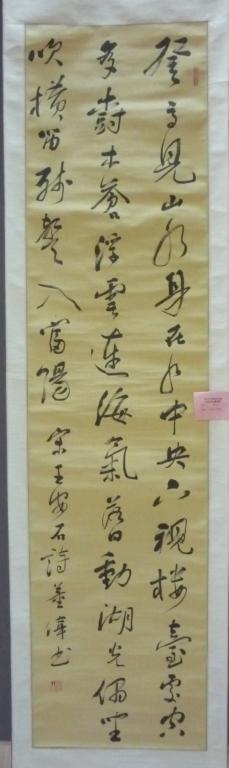 登高見山水身在水中央下視楼臺處空
多樹木蒼浮雲連海氣落日動湖光偶坐
吹橫笛殘聲入富陽 宋王安石詩 董偉书